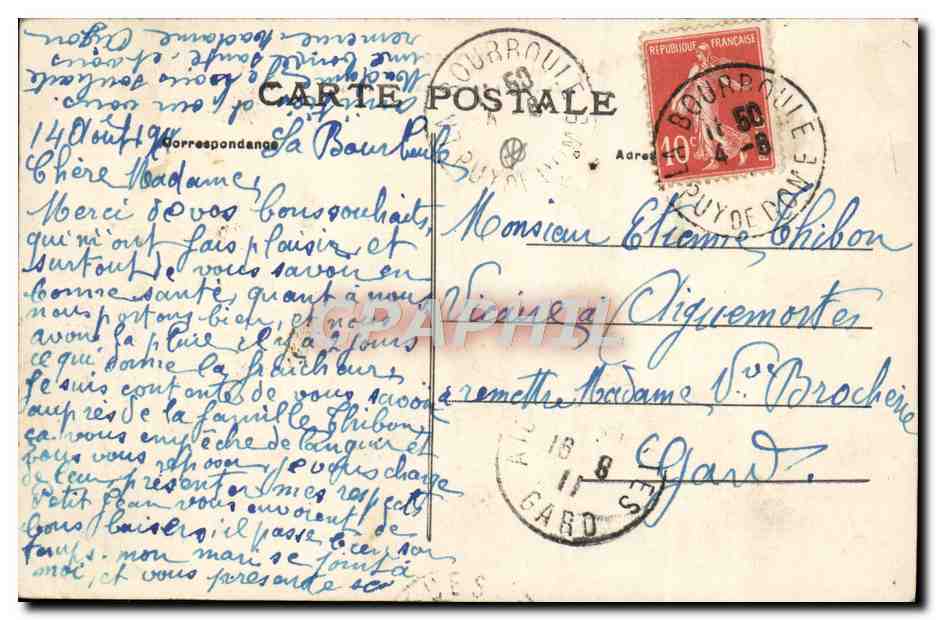 CARTE POSTALE
Correspondance
14 Août 1911 La Bourboule
Chère Madame,
Merci de vos bons souhaits,
qui m'ont fais plaisir et
surtout de vous savoir en
bonne santé, quant à nous
nous portons bien, et nous
avons la pluie il y a 2 jours
ce qui donne la fraîcheur,
Je suis contente de vous savoir
auprès de la famille Thibon
ça vous empêche de languir et
vous vous reposer, je vous charge
de leur présenter mes respects
Petit Jean vous envoient de
bons baisers, il passe
temps. mon mari se joint à
moi, et vous présente
amitiés
Madame je vous souhaite
une bonne santé, et vous
remercie Madame
Monsieur Etienne Thibon
Vicaire à Aiguemortes
à remettre Madame Vve Brocherie
Gard.
REPUBLIQUE FRANÇAISE
10c
LA BOURBOULE
11 50
4 -8
PUY DE DOME
BOURBOULE
50
PUY DE DOME
16 8
11
GARD
GRAPHIL